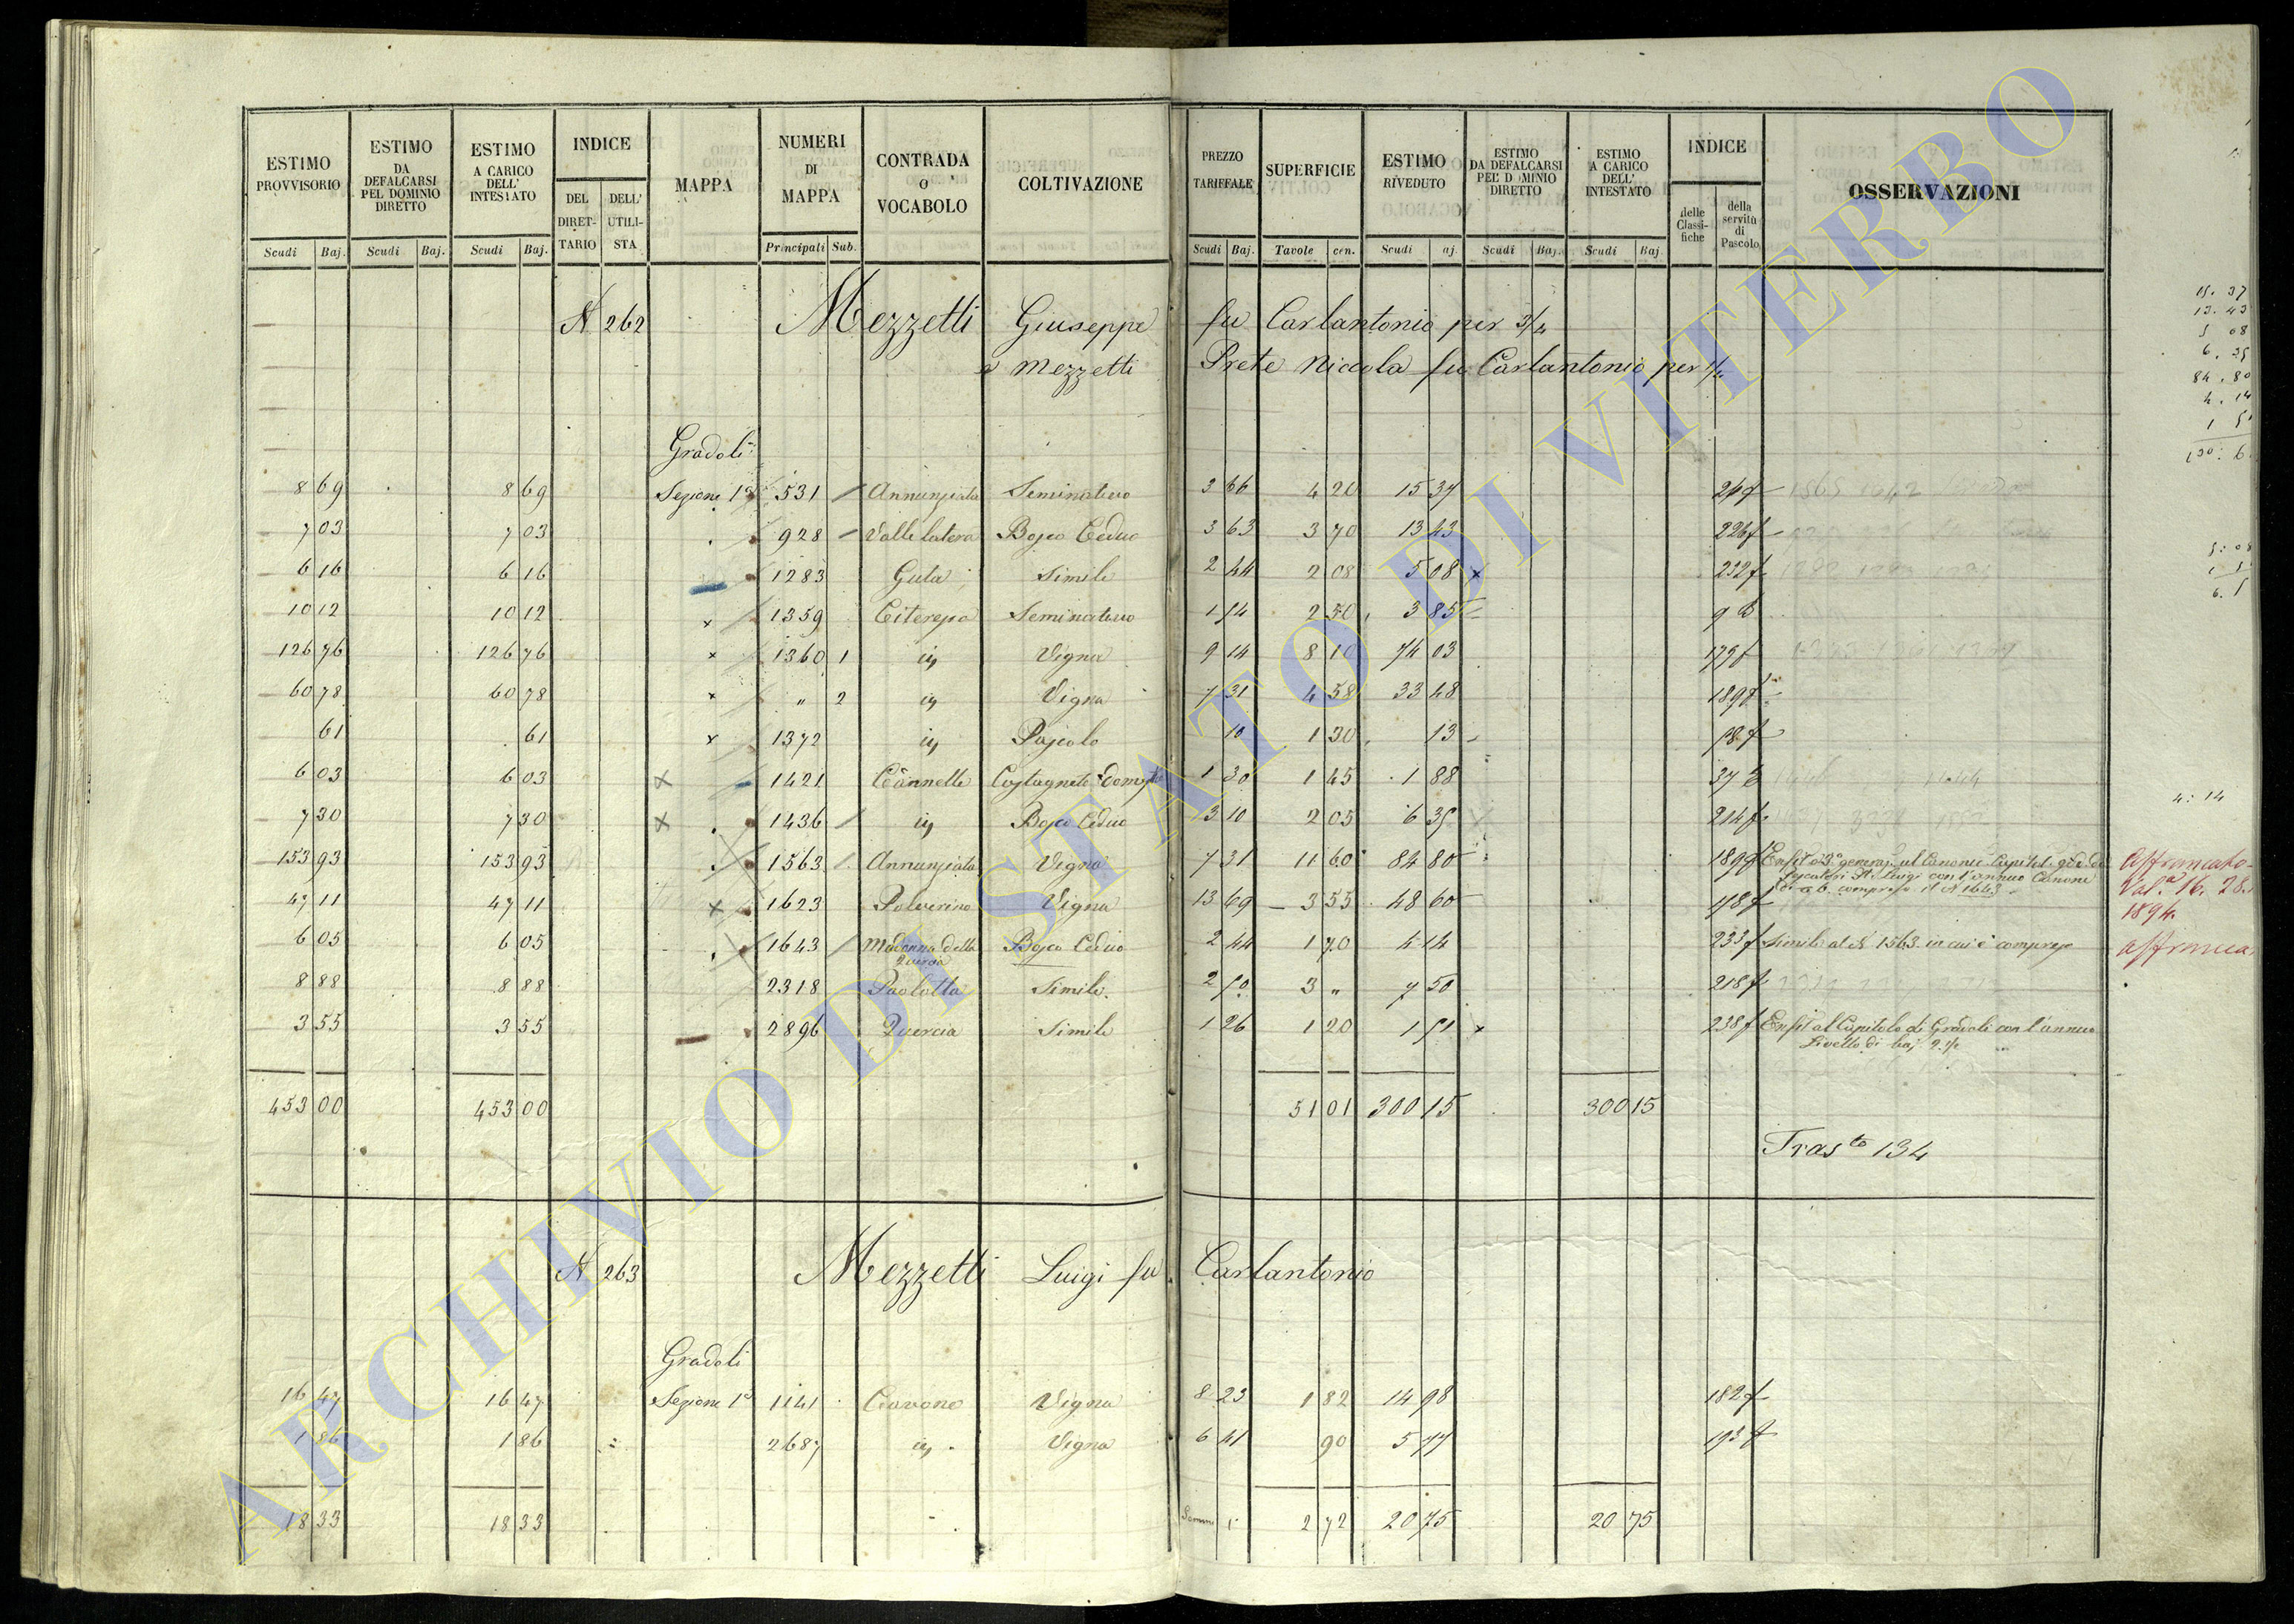 ESTIMO PROVVISORIO | ESTIMO DA DEFALCARSI PEL DOMINIO DIRETTO | ESTIMO A CARICO DELL' INTESTATO | INDICE | MAPPA | NUMERI DI MAPPA | CONTRADA O VOCABOLO | COLTIVAZIONE | PREZZO TARIFFALE | SUPERFICIE | ESTIMO RIVEDUTO | ESTIMO DA DEFALCARSI PEL DOMINIO DIRETTO | ESTIMO A CARICO DELL' INTESTATO | INDICE | OSSERVAZIONI
DEL DIRETTARIO | DELL' UTILISTA | delle Classifiche | della servitù di Pascolo
Scudi | Baj. | Scudi | Baj. | Scudi | Baj. | Principali | Sub. | Scudi | Baj. | Tavole | cen. | Scudi | aj. | Scudi | Baj. | Scudi | Baj.
N 262 Mezzetti Giuseppe fu Carlantonio per 3/4
e Mezzetti Prete Niccola fu Carlantonio per 1/4
Gradoli
8 69 | 8 69 | Sezione 1a | 531 | Annunziata | Seminativo | 3 66 | 4 20 | 15 37
7 03 | 7 03 | 928 | Valle latera | Bosco Ceduo | 3 63 | 3 70 | 13 43 | 226 f
6 16 | 6 16 | 1283 | Guta | Simile | 2 44 | 2 08 | 5 08 | 232 f
10 12 | 10 12 | 1359 | Seminativo | 1 54 | 2 50 | 3 85
126 76 | 126 76 | 1360 1 | Vigna | 9 14 | 8 10 | 74 03 | 179 f
60 78 | 60 78 | " 2 | Vigna | 7 31 | 4 58 | 33 48 | 189 f
61 | 61 | 1372 | Pascolo | 10 | 1 30 | 13
6 03 | 6 03 | 1421 | Cannelle | Castagneto Dom | 1 30 | 1 45 | 1 88
7 30 | 7 30 | 1436 | Bosco Ceduo | 3 10 | 2 05 | 6 35 | 214 f
153 93 | 153 93 | 1563 | Annunziata | Vigna | 7 31 | 11 60 | 84 80 | 189 f
con l'annuo Canone
compreso il N 1643
47 11 | 47 11 | 1623 | Polverino | Vigna | 13 69 | 3 55 | 48 60 | 178 f
6 05 | 6 05 | 1643 | Madonna della Quercia | Bosco Ceduo | 2 44 | 1 70 | 4 14 | 233 f | Simile al N 1563 in cui è compreso
8 88 | 8 88 | 2318 | Paolotta | Simile | 2 50 | 3 " | 7 50 | 218 f
3 55 | 3 55 | 2896 | Quercia | Simile | 1 26 | 1 20 | 1 51 | 238 f | Enfit al Capitolo di Gradoli con l'annuo
Livello di baj. 2 1/2
453 00 | 453 00 | 51 01 | 300 15 | 300 15
Trasto 134
N 263 Mezzetti Luigi fu Carlantonio
Gradoli
16 47 | 16 47 | Sezione 1a | 1141 | Cavone | Vigna | 8 23 | 1 82 | 14 98 | 182 f
1 86 | 1 86 | 2687 | Vigna | 6 41 | 90 | 5 77 | 193 f
18 33 | 18 33 | 2 72 | 20 75 | 20 75
15. 37
13. 43
5 08
6. 35
84. 80
4. 14
4: 14
Affrancato
1894.
ARCHIVIO DI STATO DI VITERBO